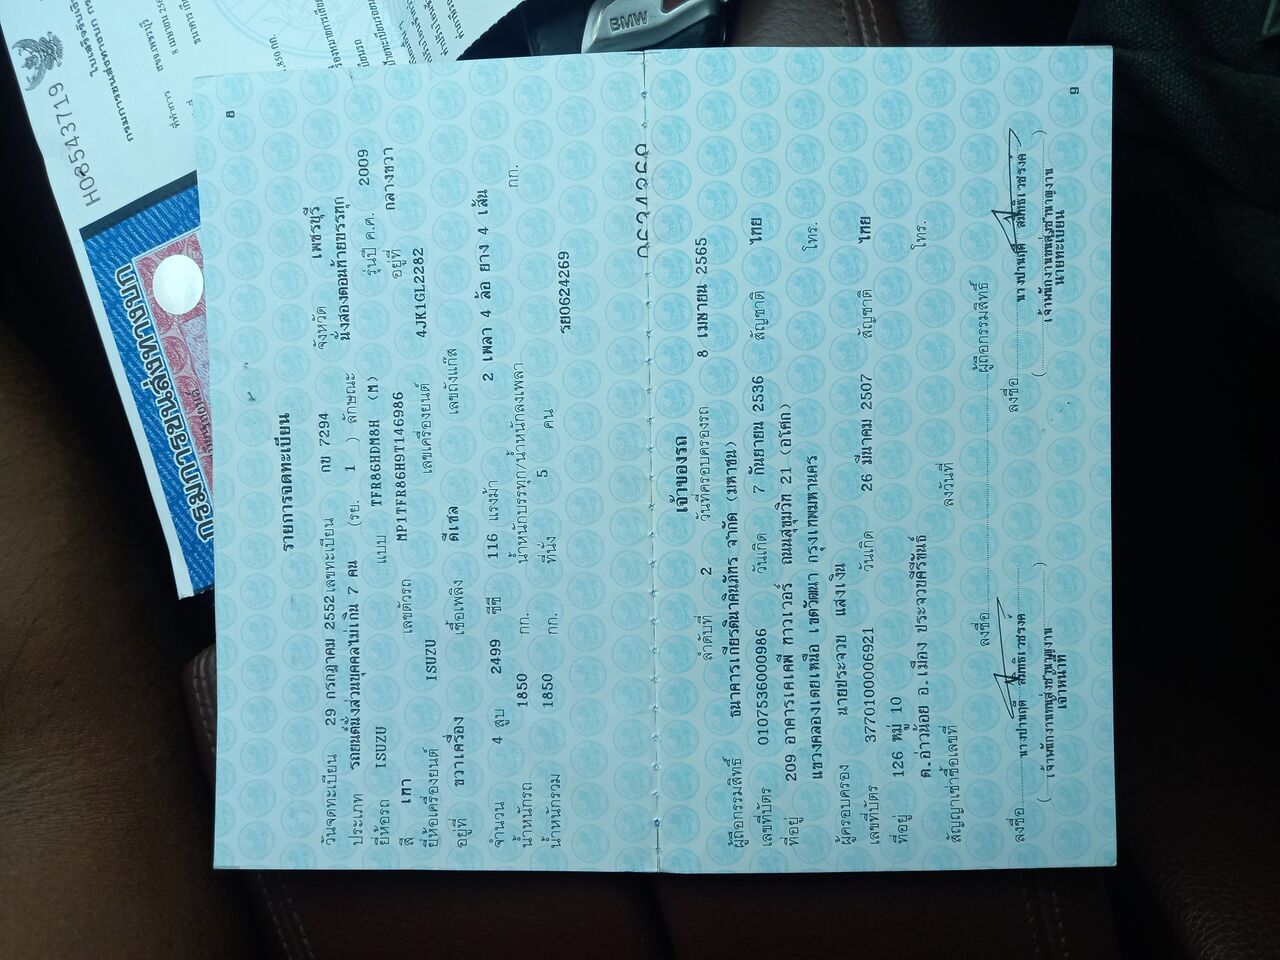 8
รายการจดทะเบียน
วันจดทะเบียน 29 กรกฎาคม 2552 เลขทะเบียน กข 7294 จังหวัด เพชรบุรี
ประเภท รถยนต์นั่งส่วนบุคคลไม่เกิน 7 คน (รย. 1 ) ลักษณะ นั่งสองตอนท้ายบรรทุก
ยี่ห้อรถ ISUZU แบบ TFR86HDM8H (M) รุ่นปี ค.ศ. 2009
สี เทา เลขตัวรถ MP1TFR86H9T146986 อยู่ที่ กลางขวา
ยี่ห้อเครื่องยนต์ ISUZU เลขเครื่องยนต์ 4JK1GL2282
อยู่ที่ ขวาเครื่อง เชื้อเพลิง ดีเซล เลขถังแก๊ส
จำนวน 4 สูบ 2499 ซีซี 116 แรงม้า 2 เพลา 4 ล้อ ยาง 4 เส้น
น้ำหนักรถ 1850 กก. น้ำหนักบรรทุก/น้ำหนักลงเพลา กก.
น้ำหนักรวม 1850 กก. ที่นั่ง 5 คน
รย0624269
เจ้าของรถ
ลำดับที่ 2 วันที่ครอบครองรถ 8 เมษายน 2565
ผู้ถือกรรมสิทธิ์ ธนาคารเกียรตินาคินภัทร จำกัด (มหาชน)
เลขที่บัตร 0107536000986 วันเกิด 7 กันยายน 2536 สัญชาติ ไทย
ที่อยู่ 209 อาคารเคเคพี ทาวเวอร์ ถนนสุขุมวิท 21 (อโศก)
แขวงคลองเตยเหนือ เขตวัฒนา กรุงเทพมหานคร โทร.
ผู้ครอบครอง นายประจวบ แสงเงิน
เลขที่บัตร 3770100006921 วันเกิด 26 มีนาคม 2507 สัญชาติ ไทย
ที่อยู่ 126 หมู่ 10
ต.อ่าวน้อย อ.เมือง ประจวบคีรีขันธ์ โทร.
สัญญาเช่าซื้อเลขที่ ลงวันที่
ลงชื่อ ผู้ถือกรรมสิทธิ์
ลงชื่อ ลงชื่อ
เจ้าหน้าที่ นายทะเบียน
9
H08543719
กรมการขนส่งทางบก
BMW